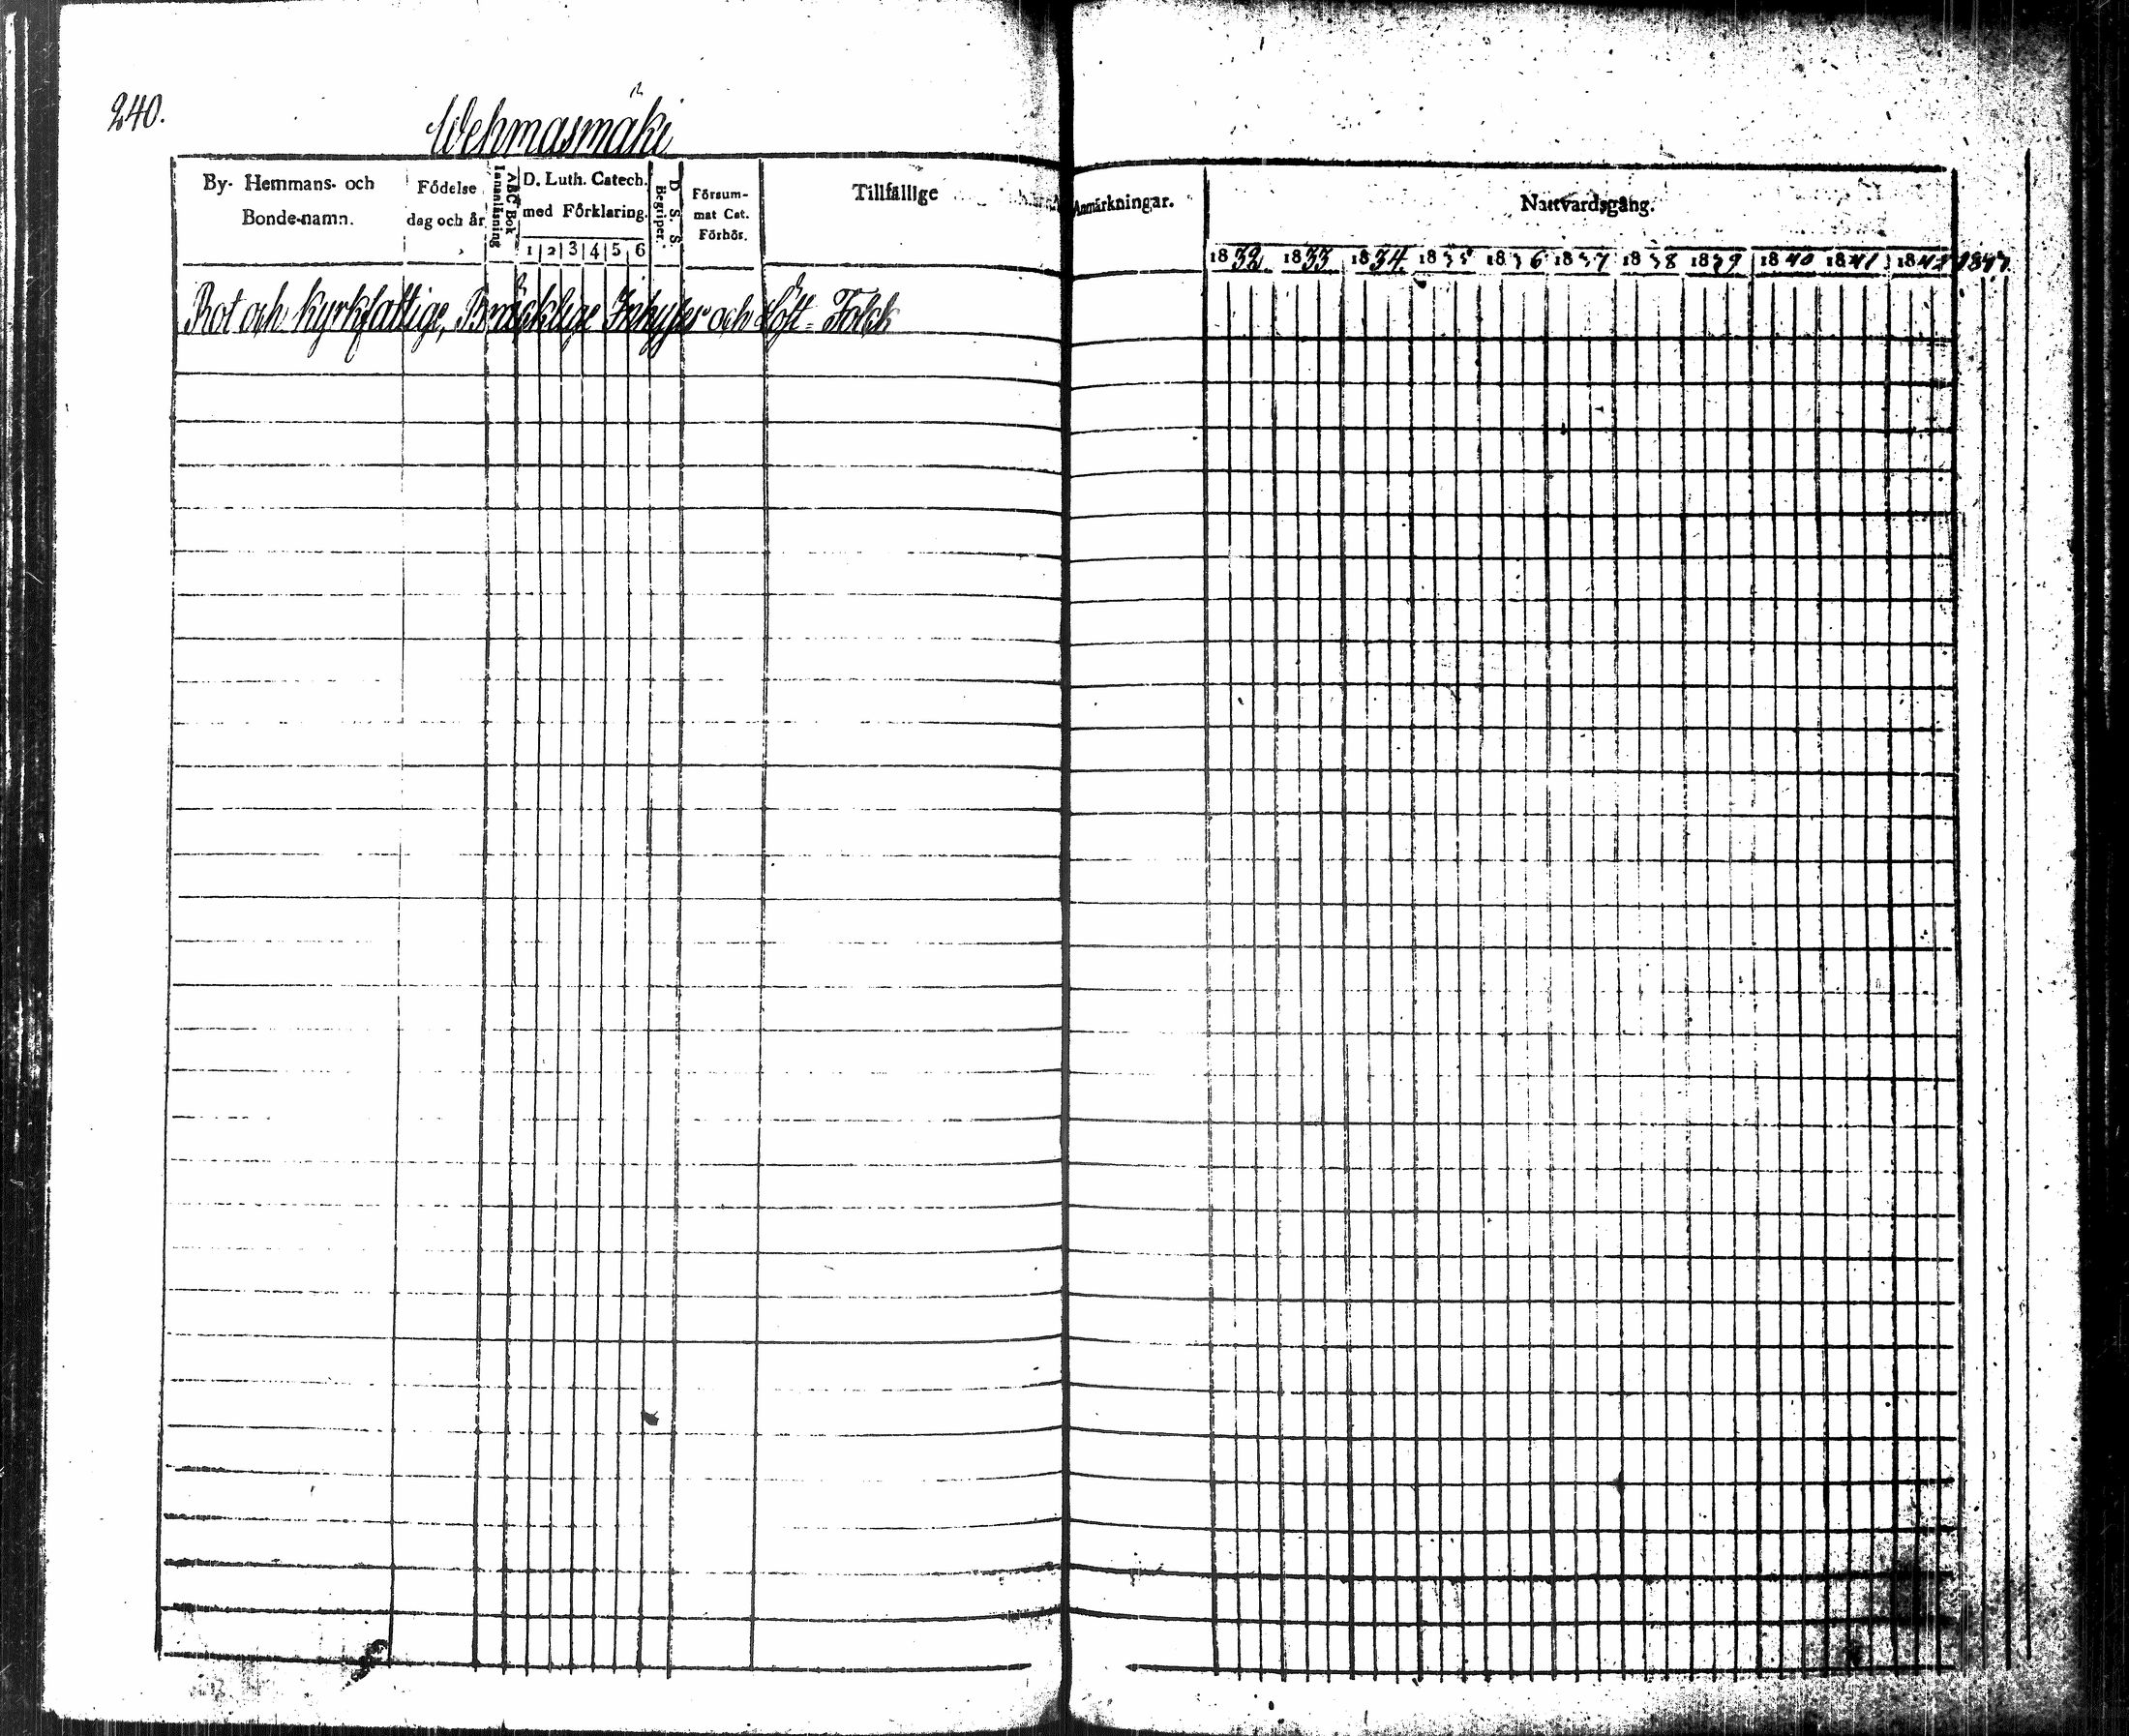 240.
Wehmasmäki
By- Hemmans- och
Bonde-namn.
Födelse
dag och år
Innanläsning
ABC Bok
D. Luth. Catech.
med Förklaring.
1 2 3 4 5 6
D. S. S.
Begriper.
Försum-
mat Cat.
Förhör.
Tillfällige
Anmärkningar.
Nattvardsgång.
1832 1833 1834 1835 1836 1837 1838 1839 1840 1841 1842 1843
Rot och Kyrkfattige, Bräcklige Inhyses och Löst-Folck